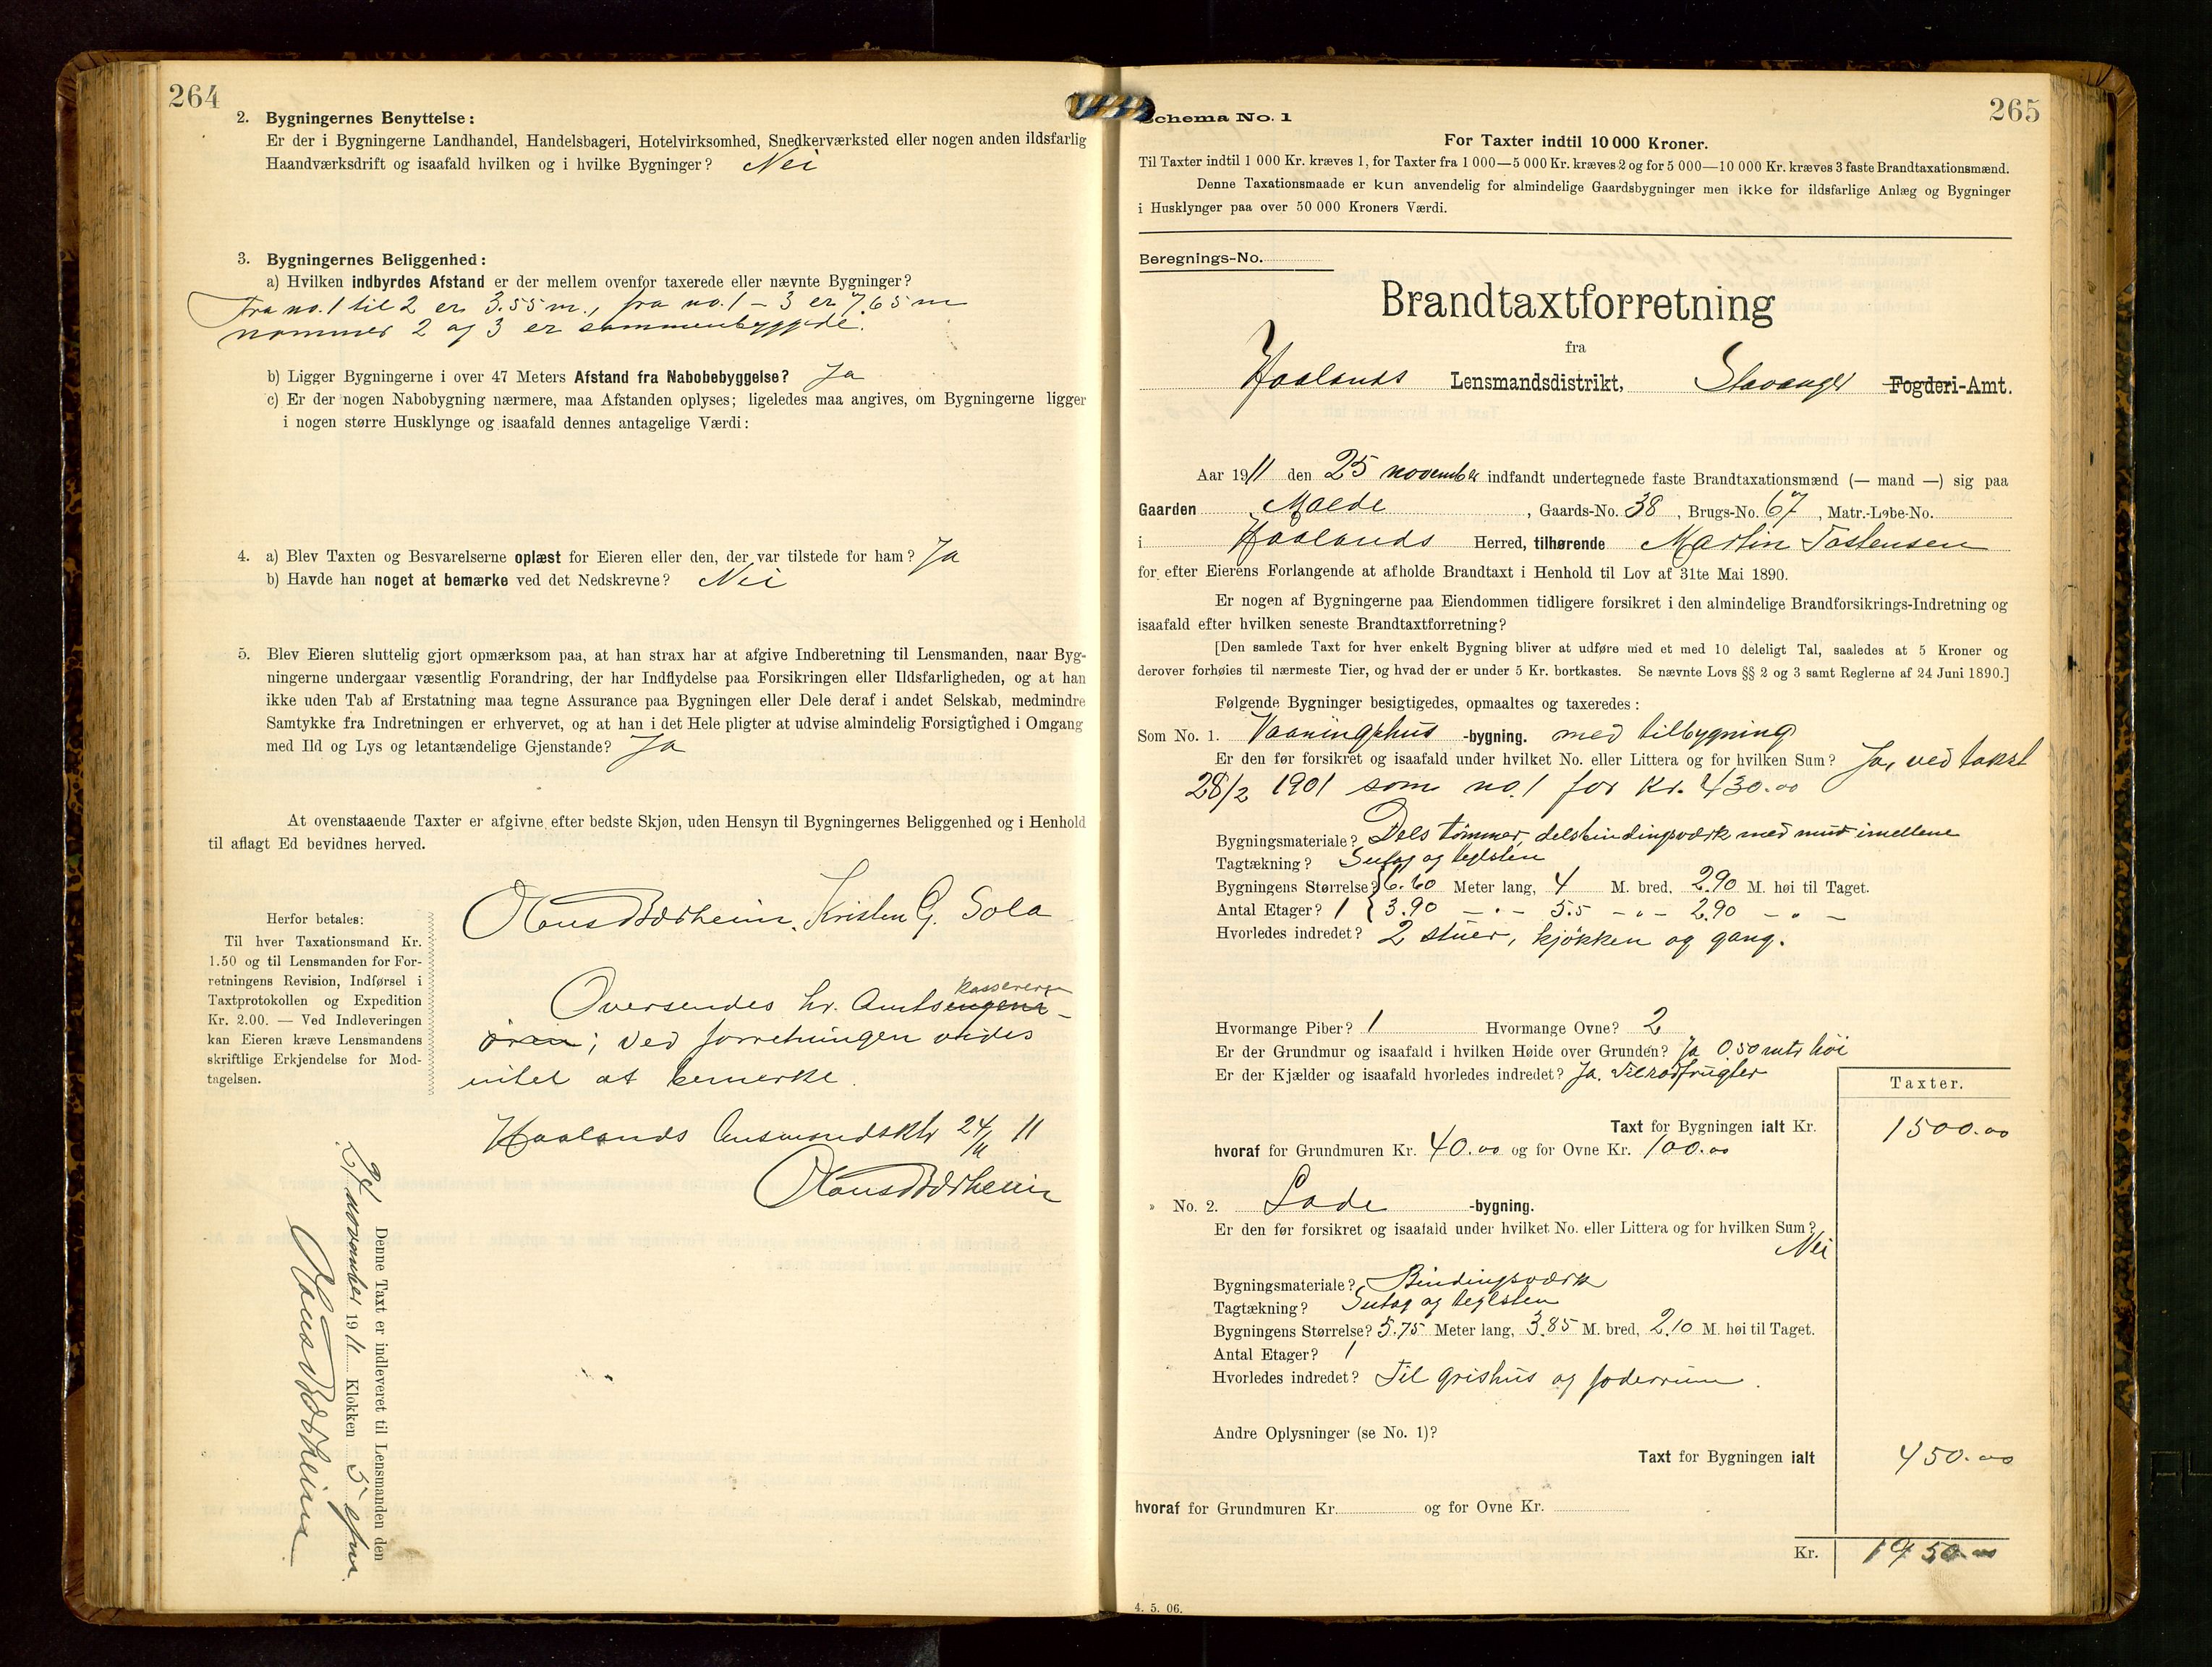 264
2. Bygningernes Benyttelse:
Er der i Bygningerne Landhandel, Handelsbageri, Hotelvirksomhed, Snedkerværksted eller nogen anden ildsfarlig
Haandværksdrift og isaafald hvilken og i hvilke Bygninger? Nei
3. Bygningernes Beliggenhed:
a) Hvilken indbyrdes Afstand er der mellem ovenfor taxerede eller nævnte Bygninger?
Fra no. 1 til 2 er 3.55 m., fra no. 1 - 3 er 7.65 m
nommer 2 og 3 er sammenbyggede.
b) Ligger Bygningerne i over 47 Meters Afstand fra Nabobebyggelse? Ja
c) Er der nogen Nabobygning nærmere, maa Afstanden oplyses; ligeledes maa angives, om Bygningerne ligger
i nogen større Husklynge og isaafald dennes antagelige Værdi:
4. a) Blev Taxten og Besvarelserne oplæst for Eieren eller den, der var tilstede for ham? Ja
b) Havde han noget at bemærke ved det Nedskrevne? Nei
5. Blev Eieren sluttelig gjort opmærksom paa, at han strax har at afgive Indberetning til Lensmanden, naar Byg-
ningerne undergaar væsentlig Forandring, der har Indflydelse paa Forsikringen eller Ildsfarligheden, og at han
ikke uden Tab af Erstatning maa tegne Assurance paa Bygningen eller Dele deraf i andet Selskab, medmindre
Samtykke fra Indretningen er erhvervet, og at han i det Hele pligter at udvise almindelig Forsigtighed i Omgang
med Ild og Lys og letantændelige Gjenstande? Ja
At ovenstaaende Taxter er afgivne efter bedste Skjøn, uden Hensyn til Bygningernes Beliggenhed og i Henhold
til aflagt Ed bevidnes herved.
Hans Bærheim. Kristen G. Sola
Herfor betales:
Til hver Taxationsmand Kr.
1.50 og til Lensmanden for For-
retningens Revision, Indførsel i
Taxtprotokollen og Expedition
Kr. 2.00. — Ved Indleveringen
kan Eieren kræve Lensmandens
skriftlige Erkjendelse for Mod-
tagelsen.
kassereren
Oversendes hr. Amtsingeni-
ören; ved forretningen vides
intet at bemerke.
Haalands lensmandsktr 24/11 11
Hans Bærheim
Denne Taxt er indleveret til Lensmanden den
24 november 1911 Klokken 5 efm.
Hans Bærheim
265
Schema No. 1
For Taxter indtil 10 000 Kroner.
Til Taxter indtil 1 000 Kr. kræves 1, for Taxter fra 1 000—5 000 Kr. kræves 2 og for 5 000—10 000 Kr. kræves 3 faste Brandtaxationsmænd.
Denne Taxationsmaade er kun anvendelig for almindelige Gaardsbygninger men ikke for ildsfarlige Anlæg og Bygninger
i Husklynger paa over 50 000 Kroners Værdi.
Beregnings-No.
Brandtaxtforretning
fra
Haalands Lensmandsdistrikt, Stavanger Fogderi-Amt.
Aar 1911 den 25 november indfandt undertegnede faste Brandtaxationsmænd (— mand —) sig paa
Gaarden Malde, Gaards-No. 38, Brugs-No. 67, Matr.-Løbe-No.
i Haalands Herred, tilhørende Martin Tostensen
for efter Eierens Forlangende at afholde Brandtaxt i Henhold til Lov af 31te Mai 1890.
Er nogen af Bygningerne paa Eiendommen tidligere forsikret i den almindelige Brandforsikrings-Indretning og
isaafald efter hvilken seneste Brandtaxtforretning?
[Den samlede Taxt for hver enkelt Bygning bliver at udføre med et med 10 deleligt Tal, saaledes at 5 Kroner og
derover forhøies til nærmeste Tier, og hvad der er under 5 Kr. bortkastes. Se nævnte Lovs §§ 2 og 3 samt Reglerne af 24 Juni 1890.]
Følgende Bygninger besigtigedes, opmaaltes og taxeredes:
Som No. 1. Vaaningshus -bygning. med tilbygning
Er den før forsikret og isaafald under hvilket No. eller Littera og for hvilken Sum? Ja, ved takst
28/2 1901 som no. 1 for Kr. 430.00
Bygningsmateriale? Dels tömmer, dels bindingsværk med mur imellem
Tagtækning? Sutag og teglsten
Bygningens Størrelse? 6.60 Meter lang, 4 M. bred, 2.90 M. høi til Taget.
Antal Etager? 1 { 3.90 — " — 5.5 — " — 2.90 — " —
Hvorledes indredet? 2 stuer, kjökken og gang.
Hvormange Piber? 1 Hvormange Ovne? 2
Er der Grundmur og isaafald i hvilken Høide over Grunden? Ja 0.50 mtr höi
Er der Kjælder og isaafald hvorledes indredet? Ja. Til rodfrugter
Taxter.
Taxt for Bygningen ialt Kr. 1500.00
hvoraf for Grundmuren Kr. 40.00 og for Ovne Kr. 100.00
» No. 2. Lade -bygning.
Er den før forsikret og isaafald under hvilket No. eller Littera og for hvilken Sum?
Nei
Bygningsmateriale? Bindingsværk
Tagtækning? Sutag og teglsten
Bygningens Størrelse? 5.75 Meter lang, 3.85 M. bred, 2.10 M. høi til Taget.
Antal Etager? 1
Hvorledes indredet? Til grishus og foderrum.
Andre Oplysninger (se No. 1)?
Taxt for Bygningen ialt 450.00
hvoraf for Grundmuren Kr. og for Ovne Kr.
Kr. 1950.00
4. 5. 06.